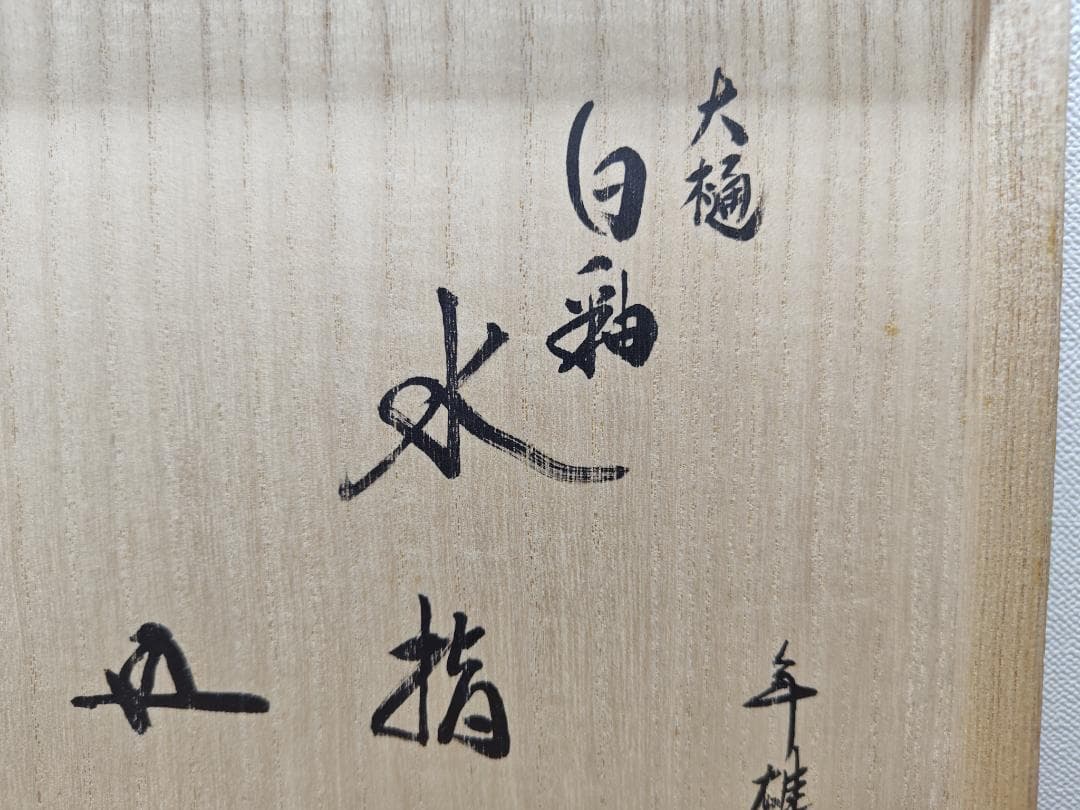 大樋
白釉
水指
年雄